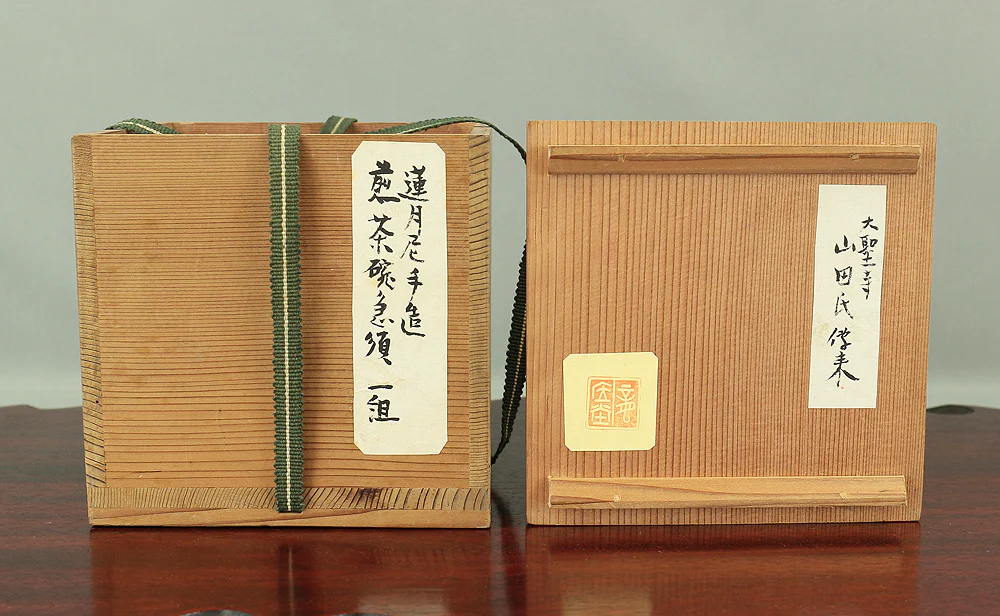 蓮月尼手造
煎茶碗急須 一組
大聖寺
山田氏傳来